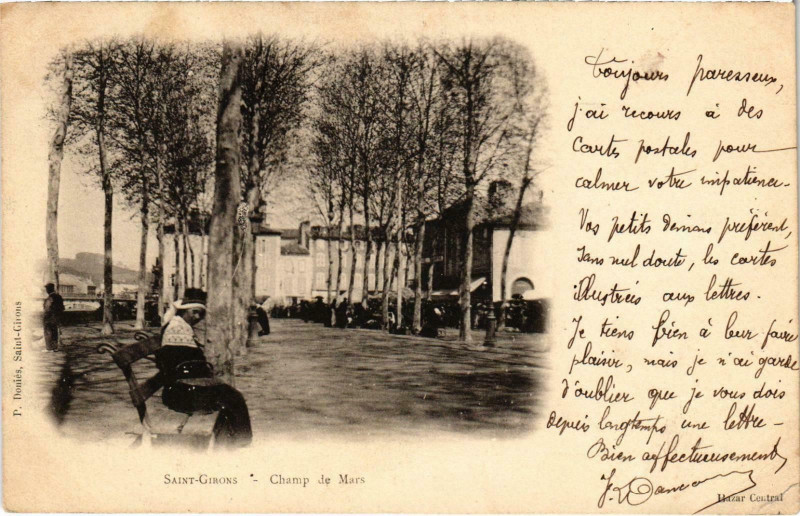 Toujours paresseux,
j'ai recours à des
Cartes postales pour
calmer votre impatience.
Vos petits demons préfèrent,
sans nul doute, les cartes
illustrées aux lettres.
Je tiens bien à leur faire
plaisir, mais je n'ai garde
d'oublier que je vous dois
depuis longtemps une lettre.
Bien affectueusement,
P. Doniès, Saint-Girons
SAINT-GIRONS - Champ de Mars
Bazar Central